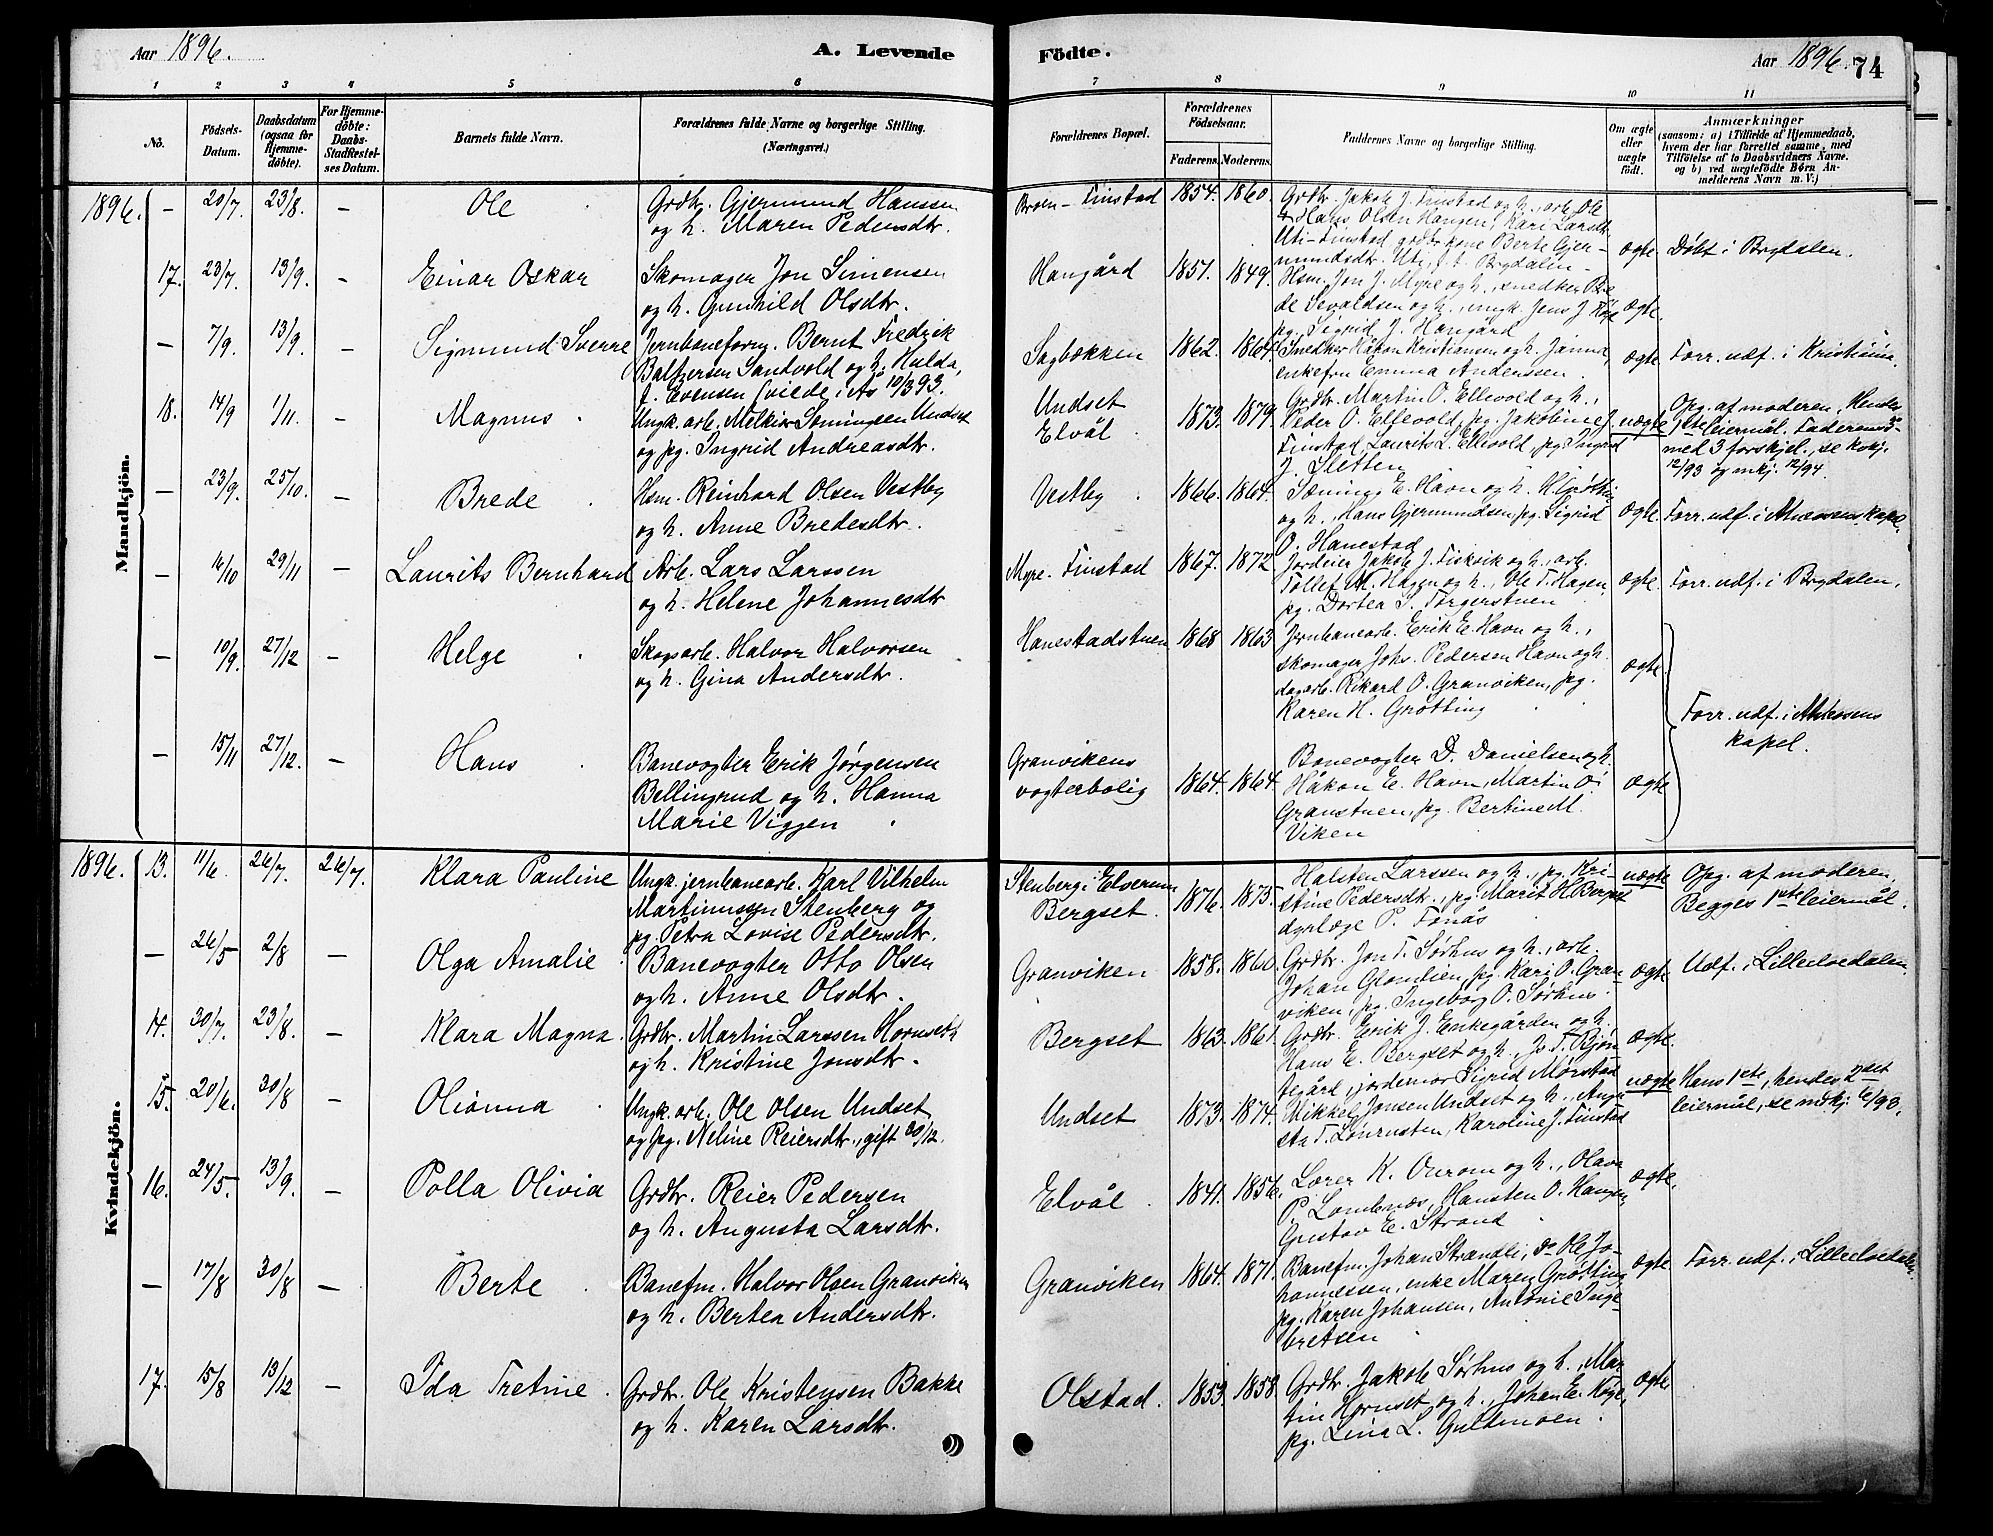 Aar 1896.
A. Levende
Födte.
Aar 1896.
74
1 2 3 4 5 6 7 8 9 10 11
No.
Födsels-
Datum.
Daabsdatum
(ogsaa for
Hjemme-
döbte).
For Hjemme-
döbte:
Daabs-
Stadfestel-
ses Datum.
Barnets fulde Navn.
Forældrenes fulde Navne og borgerlige Stilling.
(Næringsvei.)
Forældrenes Bopæl.
Forældrenes
Födselsaar.
Faderens. Moderens.
Faddernes Navne og borgerlige Stilling.
Om ægte
eller
uægte
födt.
Anmærkninger
(saasom: a) i Tilfælde af Hjemmedaab,
hvem der har forrettet samme, med
Tilföielse af to Daabsvidners Navne.
og b) ved uægtefödte Börn An-
melderens Navn m. V.)
Mandkjön.
1896. - 20/7 23/8. - Ole
Grdbr. Gjermund Hanssen
og h. Maren Pedersdtr.
Broen - Finstad 1854. 1860.
Grdbr. Jakob J. Finstad og h., arb. Ole
Hans Olsen Haugen, Kari Larsdtr.
Uti-Finstad, grdbrkone Berte Gjer-
mundsdtr. Uti, f. t. Brydalen.
ægte Døbt i Brydalen.
17. 23/7. 13/9. - Einar Oskar
Skomager Jon Simensen
og h. Gunhild Olsdtr.
Haugård 1851. 1849.
Hsm. Jon J. Myre og h., snedker Bre-
de Sevaldsen og h., ungk. Jens J.
pg. Sigrid J. Haugård
ægte.
- 7/9. 13/9. - Sigmund Sverre
Jernbaneform. Bernt Fredrik
Baltzersen Sandvold og h. Hulda,
f. Evensen (viede i Ås 10/3 93.
Sagbækken 1862. 1864.
Snedker Håkon Kristiansen og h. Janna,
enkefru Emma Anderssen.
ægte Forr. udf. i Kristiania.
18. 14/9 1/11. - Magnus
Ungk. arb. Melkior Simingsen Undset
og pg. Ingrid Andreasdtr.
Undset
Elvål
1873. 1879.
Grdbr. Martin O. Ellevold og h.,
Peder O. Ellevold, pg. Jakobine J.
Finstad, Laurits L. Ellevold, pg. Ingrid
J. Sletten
uægte Opg. af moderen. Hendes
1ste leiermål. Faderens 3
med 3 forskjel., se kvkj.
12/93 og mkj. 12/94.
- 23/9. 25/10. - Brede
Hsm. Reinhard Olsen Vestby
og h. Anne Bredesdtr.
Vestby. 1866. 1864.
Sæming E. Havn og h. H. Grøtting
og h., Hans Gjermundsen, pg. Sigrid
O. Hanestad
ægte Forr. udf. i Atneosens kapel.
- 16/10 29/11 - Laurits Bernhard
Arb. Lars Larssen
og h. Helene Johannesdtr
Myre. Finstad 1867. 1872
Jordeier Jakob J. Fiskvik og h., arb.
Tollef M. Hagen og h., Ole T. Hagen,
pg. Dortea S. Torgerstuen
ægte. Forr. udf. i Brydalen.
- 10/9. 27/12 - Helge
Skogsarb. Halvor Halvorsen
og h. Gina Andersdtr.
Hanestadstuen 1868 1863
Jernbanearb. Erik E. Havn og h.,
skomager Johs. Pedersen Havn og h.
dagarb. Rikard O. Granviken, pg.
Karen H. Grøtting
ægte
Forr. udf. i Atneosens
kapel.
- 15/11 27/12. - Hans
Banevogter Erik Jørgensen
Bellingrud og h. Hanna
Marie Viggen
Granvikens
vogterbolig
1864. 1864.
Banevogter D. Danielsen og h.
Håkon E. Havn, Martin O.
Granstuen, pg. Bertine M.
Viken
ægte
Kvindekjön.
1896. 13. 11/6. 26/7. 26/7. Klara Pauline
Ungk. jernbanearb. Karl Vilhelm
Martinussen Stenberg og
pg. Petra Lovise Pedersdtr.
Stenberg i Elverum
Bergset.
1876. 1875.
Halsten Larssen og h., pg. Kri-
stine Pedersdtr., pg. Marit H. Bergset
dyrlæge P. Tønås
uægte Opg. af moderen.
Begges 1ste leiermål.
- 26/5 2/8 - Olga Amalie
Banevogter Otto Olsen
og h. Anne Olsdtr.
Granviken 1858. 1860.
Grdbr. Jon T. Sørhus og h., arb.
Johan Glomlien, pg. Kari O. Gran-
viken, pg. Ingeborg O. Sørhus.
ægte Udf. i Lilleelvedalen.
14. 30/7. 23/8. - Klara Magna.
Grdbr. Martin Larssen Hornset
og h. Kristine Jonsdtr.
Bergset 1863. 1861.
Grdbr. Erik J. Enkegården og h.
Hans E. Bergset og h., Jo T. Bjør-
fegård, jordemor Sigrid Mørstad
ægte.
15. 20/6. 30/8 - Olianna
Ungk. arb. Ole Olsen Undset
og pg. Neline Reiersdtr., gift 30/12.
Undset 1873. 1874.
Mikkel Jonsen Undset og h., Augu-
sta T. Lønrusten, Karoline J. Finstad
uægte Hans 1ste, hendes 2det
leiermål, se mskj. 6/93.
16. 24/5. 13/9. - Polla Olivia
Grdbr. Reier Pedersen
og h. Augusta Larsdtr.
Elvål. 1841. 1856.
Lærer K. Ourom og h., Olava
P. Lombnæs, Hansten O. Haugen,
Gustav E. Strand.
ægte.
- 17/8 30/8. - Berte
Banefm. Halvor Olsen Granviken
og h. Bertea Andersdtr.
Granviken 1864. 1871.
Banefm. Johan Strandli, do Ole Jo-
hannessen, enke Maren Grøtting
pg. Karen Johansen, Antonie Inge-
bretsen
ægte Forr. udf. i Lilleelvedalen.
17. 15/8 13/12 - Ida Tretine.
Grdbr. Ole Kristensen Bakke
og h. Karen Larsdtr.
Olstad. 1853. 1858.
Grdbr. Jakob Sørhus og h., Mar-
tin Hornset og h., Johan E.
pg. Lina L. Guldmoen.
ægte